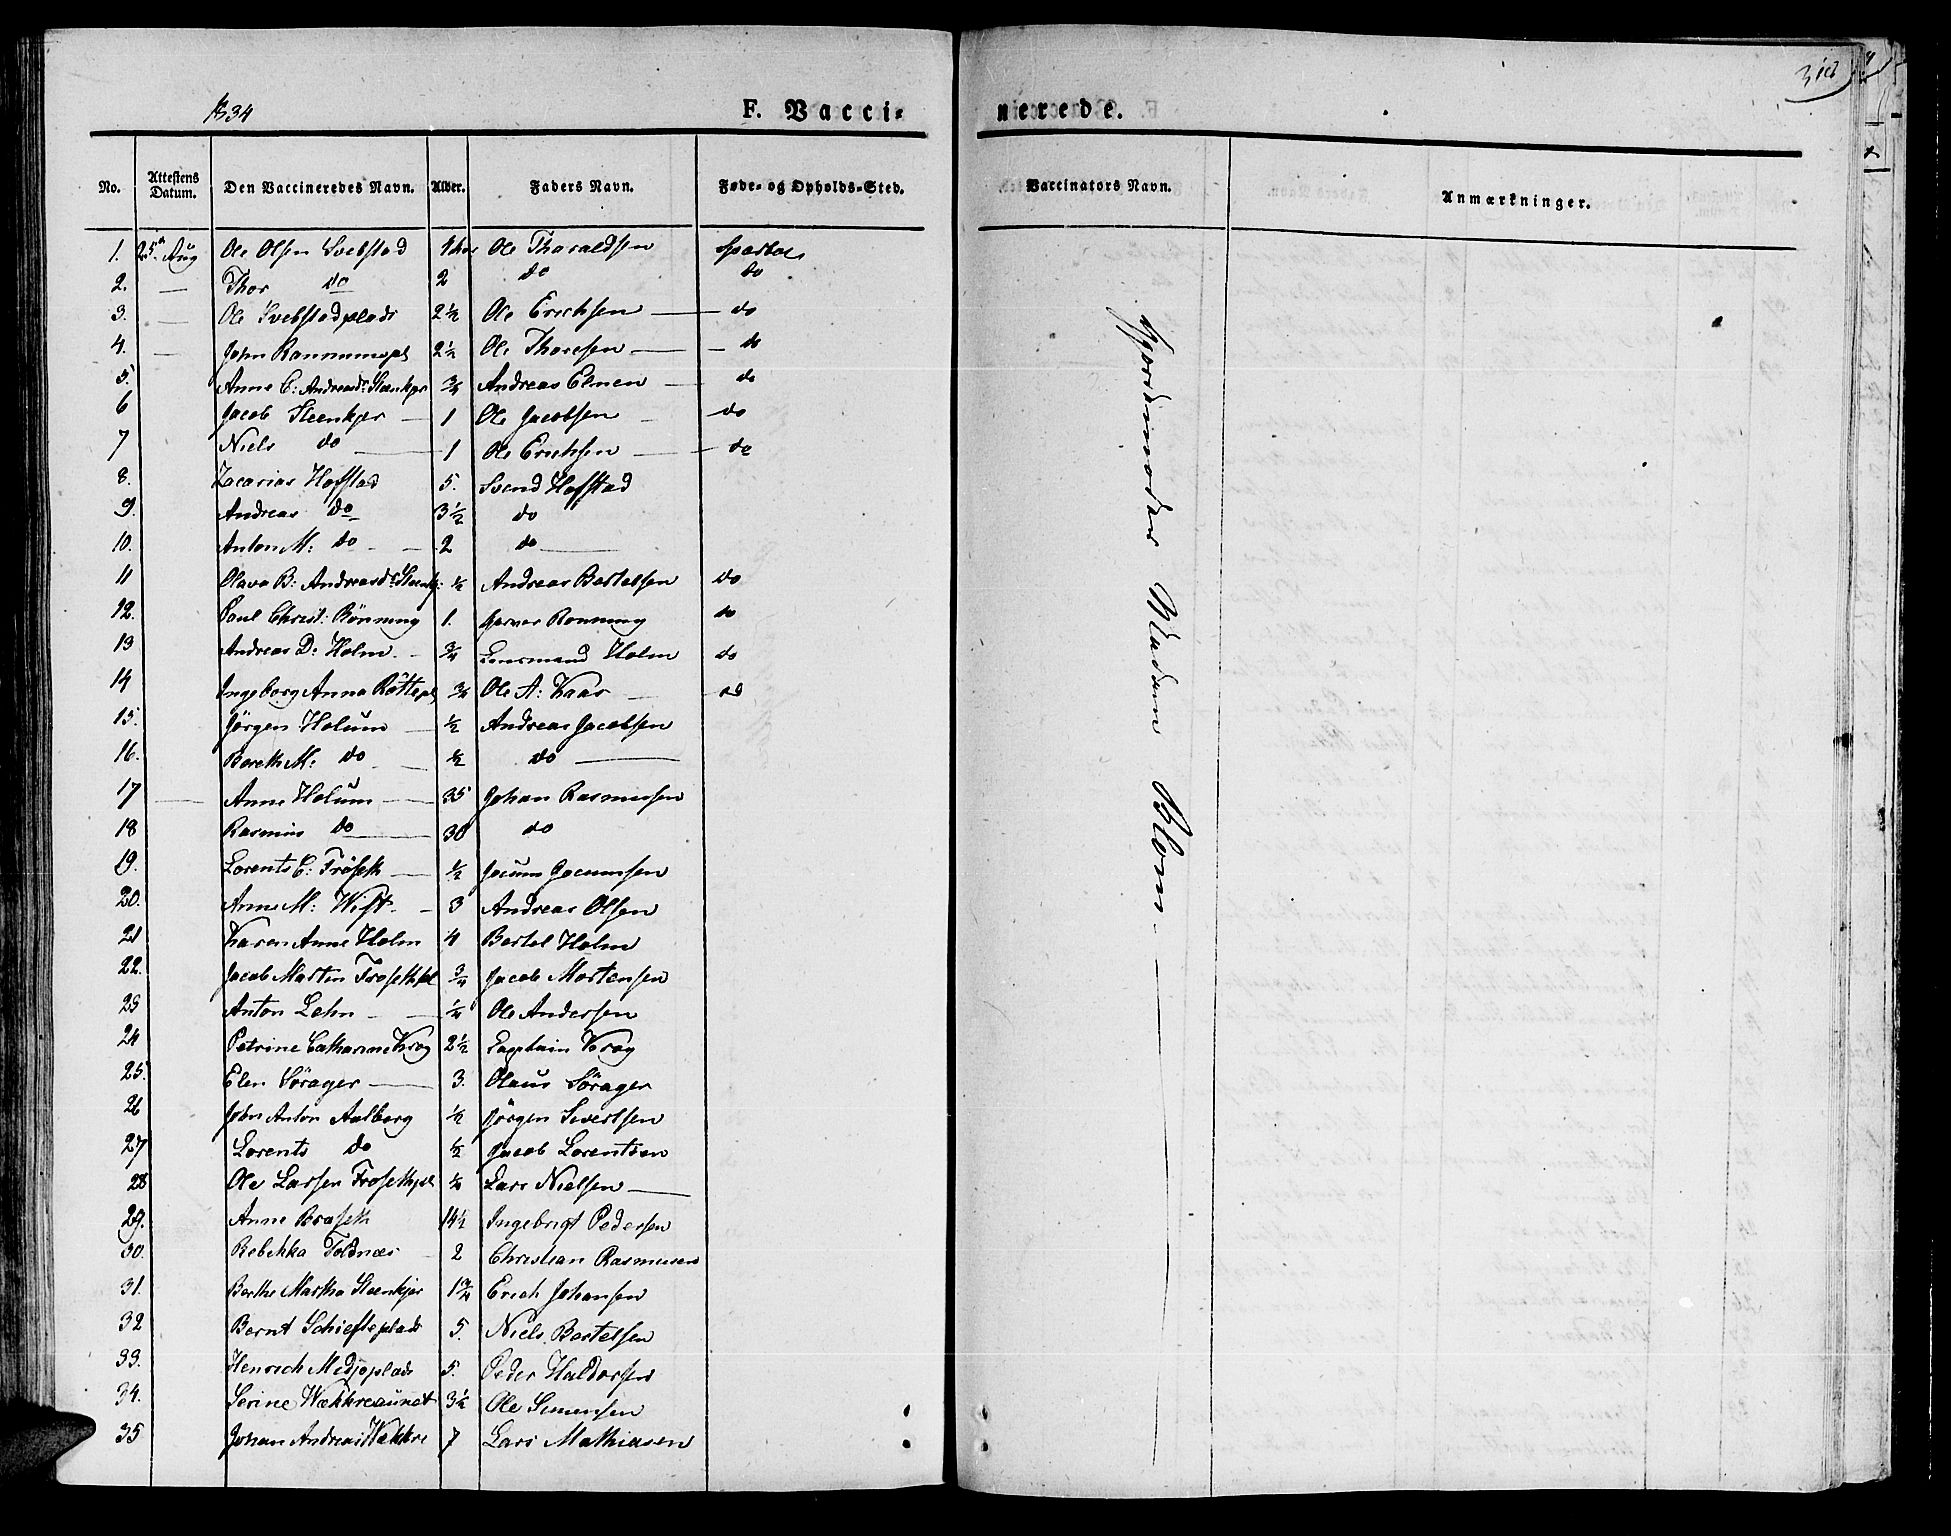 1834
F. Vacci-
nerede.
310
No. Attestens Datum. Den Vaccineredes Navn. Alder. Faders Navn. Føde- og Opholds-Sted. Vaccinators Navn. Anmærkninger.
1. 25de Aug Ole Olsen Svebstad 1 Ole Tharaldsen Sparbo
2. — Thor do 2 do do
3. — Ole Svebstadplads 2½ Ole Erichsen — do
4. — John Rannumspl 2½ Ole Thoresen — do
5. Anne C: Andreasdr Steenkjer ¾ Andreas Elnen — do
6 Jacob Steenkjer — 1 Ole Jacobsen — do
7 Niels do — 1 Ole Erichsen — do
8. Zacarias Hofstad 5. Svend Hofstad
9. Andreas do 3½ do
10. Anton M: do — 2 do —
11 Olava B: Andreasdr Steenkj: ½ Andreas Bertelsen do
12. Poul Christ: Rönning 1. Garver Rönning do
13 Andreas D: Holm — ¾ Lensmand Holm do
14 Ingeborg Anna Röttepl ¾ Ole A: Kaas — do
15. Jörgen Holum — ½ Andreas Jacobsen
16. Bereth M: do — ½ do —
17 — Anne Holum — 35 Johan Rasmusen
18 Rasmus do — 30 do
19. Lorents C: Fröseth — ½ Jocum Jocumsen
20. Anne M: Wist — 3 Andreas Olsen
21 Karen Anne Holm 4 Bertel Holm
22. Jacob Martin Frosethpl ¾ Jacob Mortensen
23 Anton Lehn — ¼ Ole Andersen
24 Petrine Catharine Krog 2½ Captain Krog
25. Elen Sörager — 3. Olaus Sörager
26 John Anton Aalberg ½ Jörgen Sivertsen
27 Lorents do ½ Jacob Lorentsen
28 Ole Larsen Frosethpl ½ Lars Nielsen —
29. Anne Braseth 14½ Ingebrigt Pedersen
30. Rebekka Toldnæs — 2 Christian Rasmusen
31. Berthe Martha Steenkjer 1¾ Erich Johansen
32 Bernt Schiefteplads 5. Niels Bertelsen
33. Henrich Medjeplads 5. Peder Haldorsen
34. Serine Wækkreaunet 3½ Ole Simensen
35 Johan Andreas Wækkre 7 Lars Mathiasen
Gjordemoder Madam Blom —